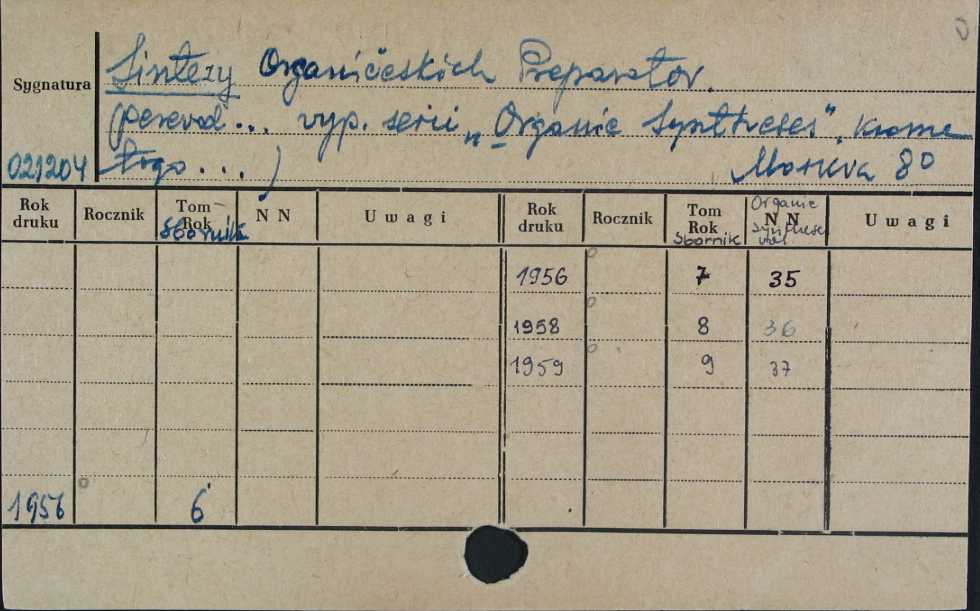 Sintezy Organičeskich Preparatov.
Sygnatura
(perevod... vyp. serii „Organic Syntheses", krome
021204 togo...) Moskva 8°
Rok druku Rocznik Tom Rok Sbornik N N Uwagi Rok druku Rocznik Tom Rok Sbornik Organic N N Uwagi
1956 7 35
1958 8 36
1959 9 37
1956 6